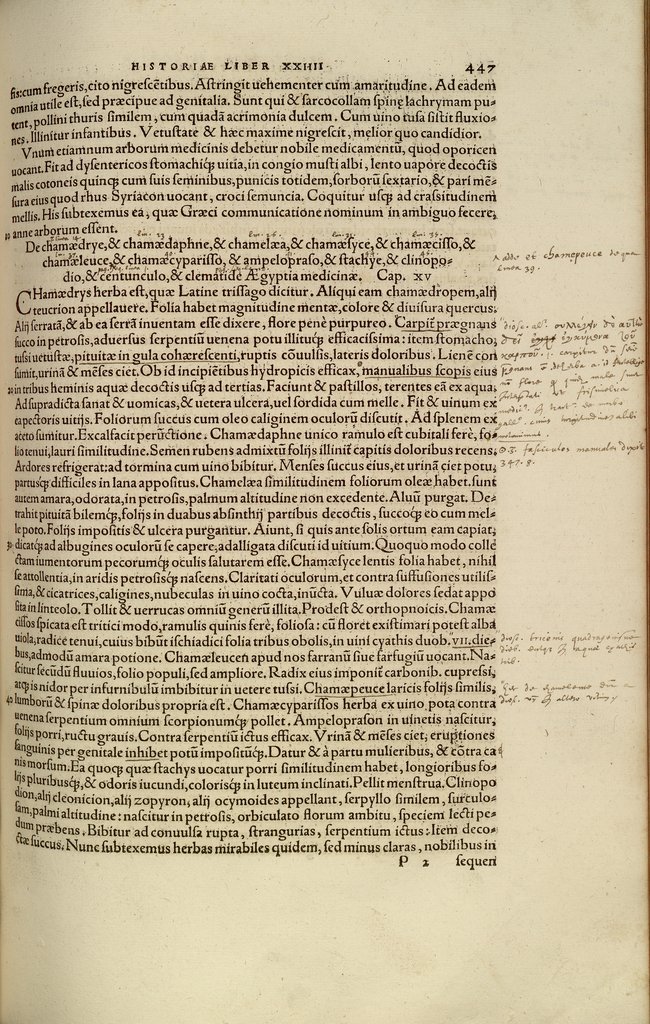 HISTORIAE LIBER XXIIII 447
sis: cum fregeris, cito nigrescẽtibus. Astringit uehementer cum amaritudine. Ad eadem
omnia utile est, sed præcipue ad genitalia. Sunt qui & sarcocollam spinę lachrymam pu-
tent, pollini thuris similem, cum quadã acrimonia dulcem. Cum uino tusa sistit fluxio-
nes. Illinitur infantibus. Vetustate & hæc maxime nigrescit, melior quo candidior.
Vnum etiamnum arborum medicinis debetur nobile medicamentũ, quod oporicen
uocant. Fit ad dysentericos stomachiq́; uitia, in congio musti albi, lento uapore decoctis
malis cotoneis quinq; cum suis seminibus, punicis totidem, sorborũ sextario, & pari mẽ-
sura eius quod rhus Syriacon uocant, croci semuncia. Coquitur usq; ad crassitudinem
mellis. His subtexemus ea, quæ Græci communicatione nominum in ambiguo fecere,
10 anne arborum essent.
De chamædrye, & chamædaphne, & chamelæa, & chamæsyce, & chamæcisso, &
chamæleuce, & chamæcyparisso, & ampelopraso, & stachye, & clinopo-
dio, & centunculo, & clematide Ægyptia medicinæ. Cap. XV
CHamædrys herba est, quæ Latine trissago dicitur. Aliqui eam chamædropem, alij
teucrion appellauere. Folia habet magnitudine mentæ, colore & diuisura quercus.
Alij serratã, & ab ea serrã inuentam esse dixere, flore penè purpureo. Carpit̃ prægnans
succo in petrosis, aduersus serpentiũ uenena potu illituq́; efficacissima: item stomacho,
tussi uetustæ, pituitæ in gula cohærescenti, ruptis cõuulsis, lateris doloribus. Lienẽ con
sumit, urinã & mẽses ciet. Ob id incipiẽtibus hydropicis efficax, manualibus scopis eius
20 in tribus heminis aquæ decoctis usq; ad tertias. Faciunt & pastillos, terentes eã ex aqua,
Ad supradicta sanat & uomicas, & uetera ulcera, uel sordida cum melle. Fit & uinum ex
ea pectoris uitijs. Foliorum succus cum oleo caliginem oculorũ discutit. Ad splenem ex
aceto sumitur. Excalfacit perũctione. Chamædaphne unico ramulo est cubitali ferè, fo-
lio tenui, lauri similitudine. Semen rubens admixtũ folijs illinit̃ capitis doloribus recens,
Ardores refrigerat: ad tormina cum uino bibitur. Menses succus eius, et urinã ciet potu,
partusq́; difficiles in lana appositus. Chamelæa similitudinem foliorum oleæ habet. sunt
autem amara, odorata, in petrosis, palmum altitudine non excedente. Aluũ purgat. De-
trahit pituitã bilemq́;, folijs in duabus absinthij partibus decoctis, succoq́; eo cum mel-
le poto. Folijs impositis & ulcera purgantur. Aiunt, si quis ante solis ortum eam capiat,
30 dicatq́; ad albugines oculorũ se capere, adalligata discuti id uitium. Quoquo modo collẽ
ctam iumentorum pecorumq́; oculis salutarem esse. Chamæsyce lentis folia habet, nihil
se attollentia, in aridis petrosisq́; nascens. Claritati oculorum, et contra suffusiones utilis-
sima, & cicatrices, caligines, nubeculas in uino cocta, inũcta. Vuluæ dolores sedat appo
sita in linteolo. Tollit & uerrucas omniũ generũ illita. Prodest & orthopnoicis. Chamæ
cissos spicata est tritici modo, ramulis quinis ferè, foliosa: cũ floret existimari potest alba
uiola, radice tenui, cuius bibũt ischiadici folia tribus obolis, in uini cyathis duob. vii. die-
bus, admodũ amara potione. Chamæleucen apud nos farranũ siue farfugiũ uocant. Na-
scitur secũdũ fluuios, folio populi, sed ampliore. Radix eius imponit̃ carbonib. cupressi,
atq; is nidor per infurnibulũ imbibitur in uetere tussi. Chamæpeuce laricis folijs similis,
40 lumborũ & spinæ doloribus propria est. Chamæcyparissos herba ex uino pota contra
uenena serpentium omnium scorpionumq́; pollet. Ampeloprason in uinetis nascitur,
folijs porri, ructu grauis. Contra serpentiũ ictus efficax. Vrinã & mẽses ciet; eruptiones
sanguinis per genitale inhibet potũ impositũq́;. Datur & à partu mulieribus, & cõtra ca
nis morsum. Ea quoq; quæ stachys uocatur porri similitudinem habet, longioribus fo-
lijs pluribusq́;, & odoris iucundi, colorisq́; in luteum inclinati. Pellit menstrua. Clinopo
dion, alij cleonicion, alij zopyron, alij ocymoides appellant, serpyllo similem, surculo-
sam, palmi altitudine: nascitur in petrosis, orbiculato florum ambitu, speciem lecti pe-
dum præbens. Bibitur ad conuulsa rupta, strangurias, serpentium ictus: Item deco-
ctæ succus. Nunc subtexemus herbas mirabiles quidem, sed minus claras, nobilibus in
P 2 sequen